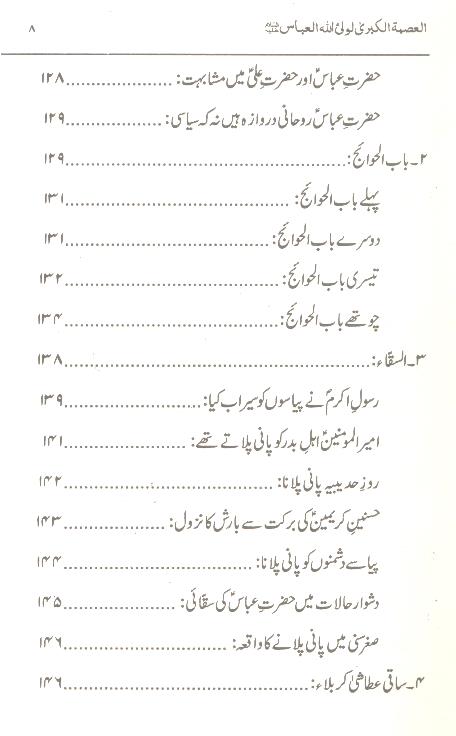 العصمة الکبریٰ لولیّ اللہ العباس ۸
حضرتِ عباسؑ اور حضرتِ علیؑ میں مشابہت: ..................... ۱۲۸
حضرتِ عباسؑ روحانی دروازہ ہیں نہ کہ سیاسی: ................... ۱۲۹
۲۔باب الحوائج: ........................................................ ۱۲۹
پہلے باب الحوائج: ............................................. ۱۳۱
دوسرے باب الحوائج: ........................................ ۱۳۱
تیسری باب الحوائج: .......................................... ۱۳۲
چوتھے باب الحوائج: .......................................... ۱۳۴
۳۔السقّاء: .............................................................. ۱۳۸
رسولِ اکرمؐ نے پیاسوں کو سیراب کیا: ........................... ۱۳۹
امیرالمومنینؑ اہلِ بدر کو پانی پلاتے تھے: ........................ ۱۴۱
روزِ حدیبیہ پانی پلانا: ......................................... ۱۴۲
حسنینِ کریمینؑ کی برکت سے بارش کا نزول: .................... ۱۴۳
پیاسے دشمنوں کو پانی پلانا: ..................................... ۱۴۴
دشوار حالات میں حضرتِ عباسؑ کی سقّائی: ...................... ۱۴۵
صغرسنی میں پانی پلانے کا واقعہ: ................................ ۱۴۶
۴۔ساقیِ عطاشیٰ کربلاء: ................................................ ۱۴۶